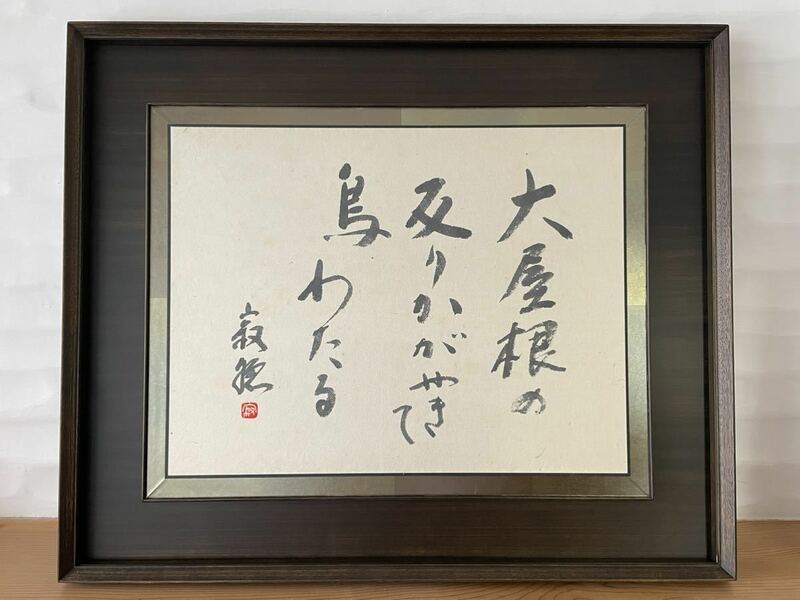 大屋根の
反りかがやきて
鳥わたる
寂聴
寂